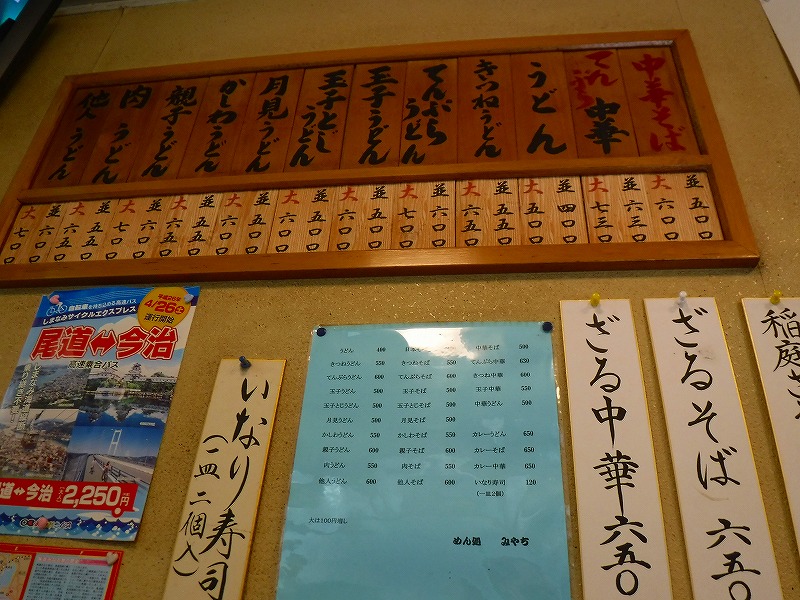 中華そば
てんぷら中華
うどん
きつねうどん
てんぷらうどん
玉子うどん
玉子とじうどん
月見うどん
かしわうどん
親子うどん
肉うどん
他人うどん
並 五〇〇 大 六〇〇
並 六三〇 大 七三〇
並 四〇〇 大 五〇〇
並 五五〇 大 六五〇
並 六〇〇 大 七〇〇
並 五〇〇 大 六〇〇
並 五〇〇 大 六〇〇
並 五〇〇 大 六〇〇
並 五五〇 大 六五〇
並 六〇〇 大 七〇〇
並 五五〇 大 六五〇
並 六〇〇 大 七〇〇
自転車を持ち込める高速バス
しまなみサイクルエクスプレス
平成26年
4/26(土)
運行開始
尾道⇔今治
高速乗合バス
道⇔今治
2,250円
いなり寿司
(一皿二個入)
うどん 400
きつねうどん 550
てんぷらうどん 600
玉子うどん 500
玉子とじうどん 500
月見うどん 500
かしわうどん 550
親子うどん 600
肉うどん 550
他人うどん 600
きつねそば 550
てんぷらそば 600
玉子そば 500
玉子とじそば 500
月見そば 500
かしわそば 550
親子そば 600
肉そば 550
他人そば 600
中華そば 500
てんぷら中華 630
きつね中華 600
玉子中華 550
中華うどん 500
カレーうどん 650
カレーそば 650
カレー中華 650
いなり寿司 120
(一皿2個)
大は100円増し
めん処 みやち
ざる中華 六五〇
ざるそば 六五〇
稲庭